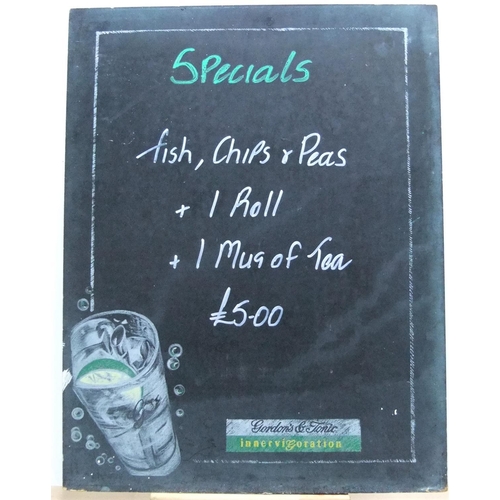 Specials
fish, Chips & Peas
+ 1 Roll
+ 1 Mug of Tea
£5-00
Gordon's & Tonic
innervigoration